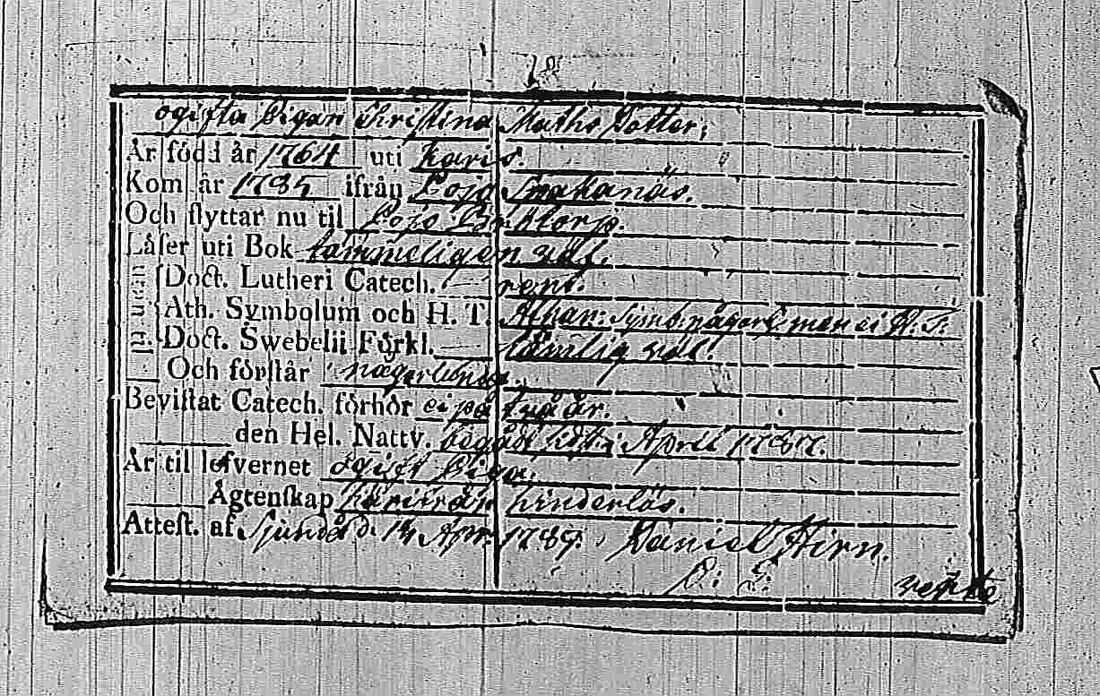 ogifta Pigan Christina Maths Dotter;
År född år 1764 uti Karis.
Kom år 1785 ifrån Lojo
Och flyttar nu til Lojo
Låſer uti Bok tämmeligen väl.
Doct. Lutheri Catech. rent.
Ath. Symbolum och H. T. Athan: Symb: någorl. men ei H. T.
Doct. Swebelii Förkl. väl.
Och förſtår någorlunda.
Beviſtat Catech. förhör ei på två år.
den Hel. Nattv. begådt ſidſt i April 1787.
År til lefvernet ogift Piga.
Ågtenſkap hinderlös.
Atteſt. af Sjundå d. Apr. 1789. Daniel Hirn.